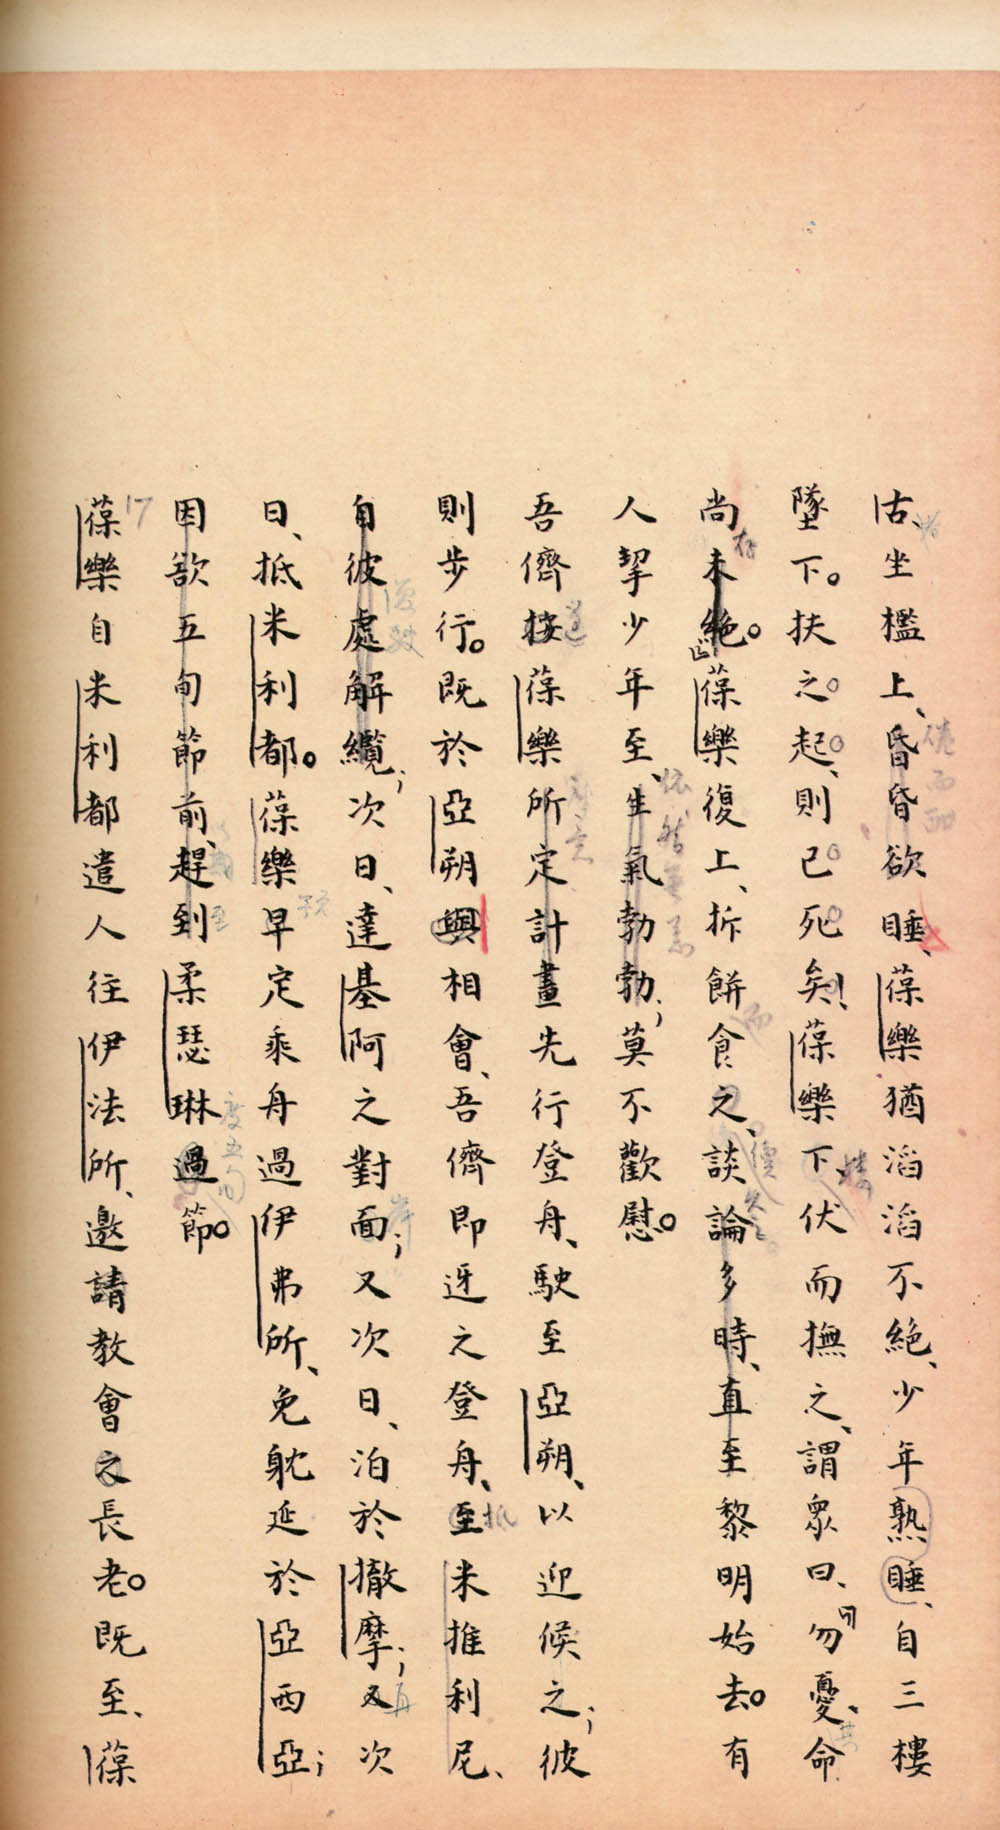 古、坐檻上、昏昏欲睡、葆樂猶滔滔不絕、少年熟睡、自三樓
墜下。扶之起、則已死矣!葆樂下、伏而撫之、謂眾曰、勿憂、命
尚未絕。葆樂復上、拆餅食之、談論多時、直至黎明始去。有
人挈少年至、生氣勃勃；莫不歡慰。
吾儕按葆樂所定計畫先行登舟、駛至亞朔、以迎候之；彼
則步行。既於亞朔與相會、吾儕即迓之登舟、至米推利尼、
自彼處解纜；次日、達基阿之對面；又次日、泊於撒摩；又次
日、抵米利都。葆樂早定乘舟過伊弗所、免躭延於亞西亞；
因欲五旬節前、趕到柔瑟琳過節。
17
葆樂自米利都遣人往伊法所、邀請教會之長老。既至、葆